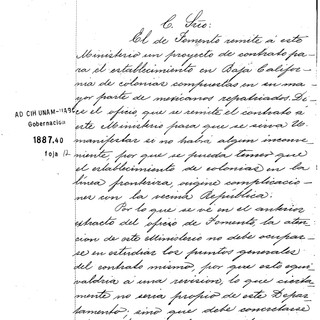 C. Srio:
El de Fomento remite á este
Ministerio un proyecto de contrato pa-
ra el establecimiento en Baja Califor-
nia de colonias compuestas en su ma-
yor parte de mexicanos repatriados. Di-
ce el oficio, que se remite el contrato á
este Ministerio para que se sirva
manifestar si no habrá algun inconve-
niente, por que se pueda temer que
el establecimiento de colonias en la
línea fronteriza, origine complicacio-
nes con la vecina República.
Por lo que se vé en el anterior
extracto del oficio de Fomento, la aten-
cion de este Ministerio no debe ocupar-
se en estudiar los puntos generales
del contrato mismo, por que esto equi-
valdría á una revision, lo que cierta-
mente no sería propio de este Depar-
tamento; sino que debe concretarse
AD CIH UNAM-IIAS
Gobernación
1887.40
foja 12